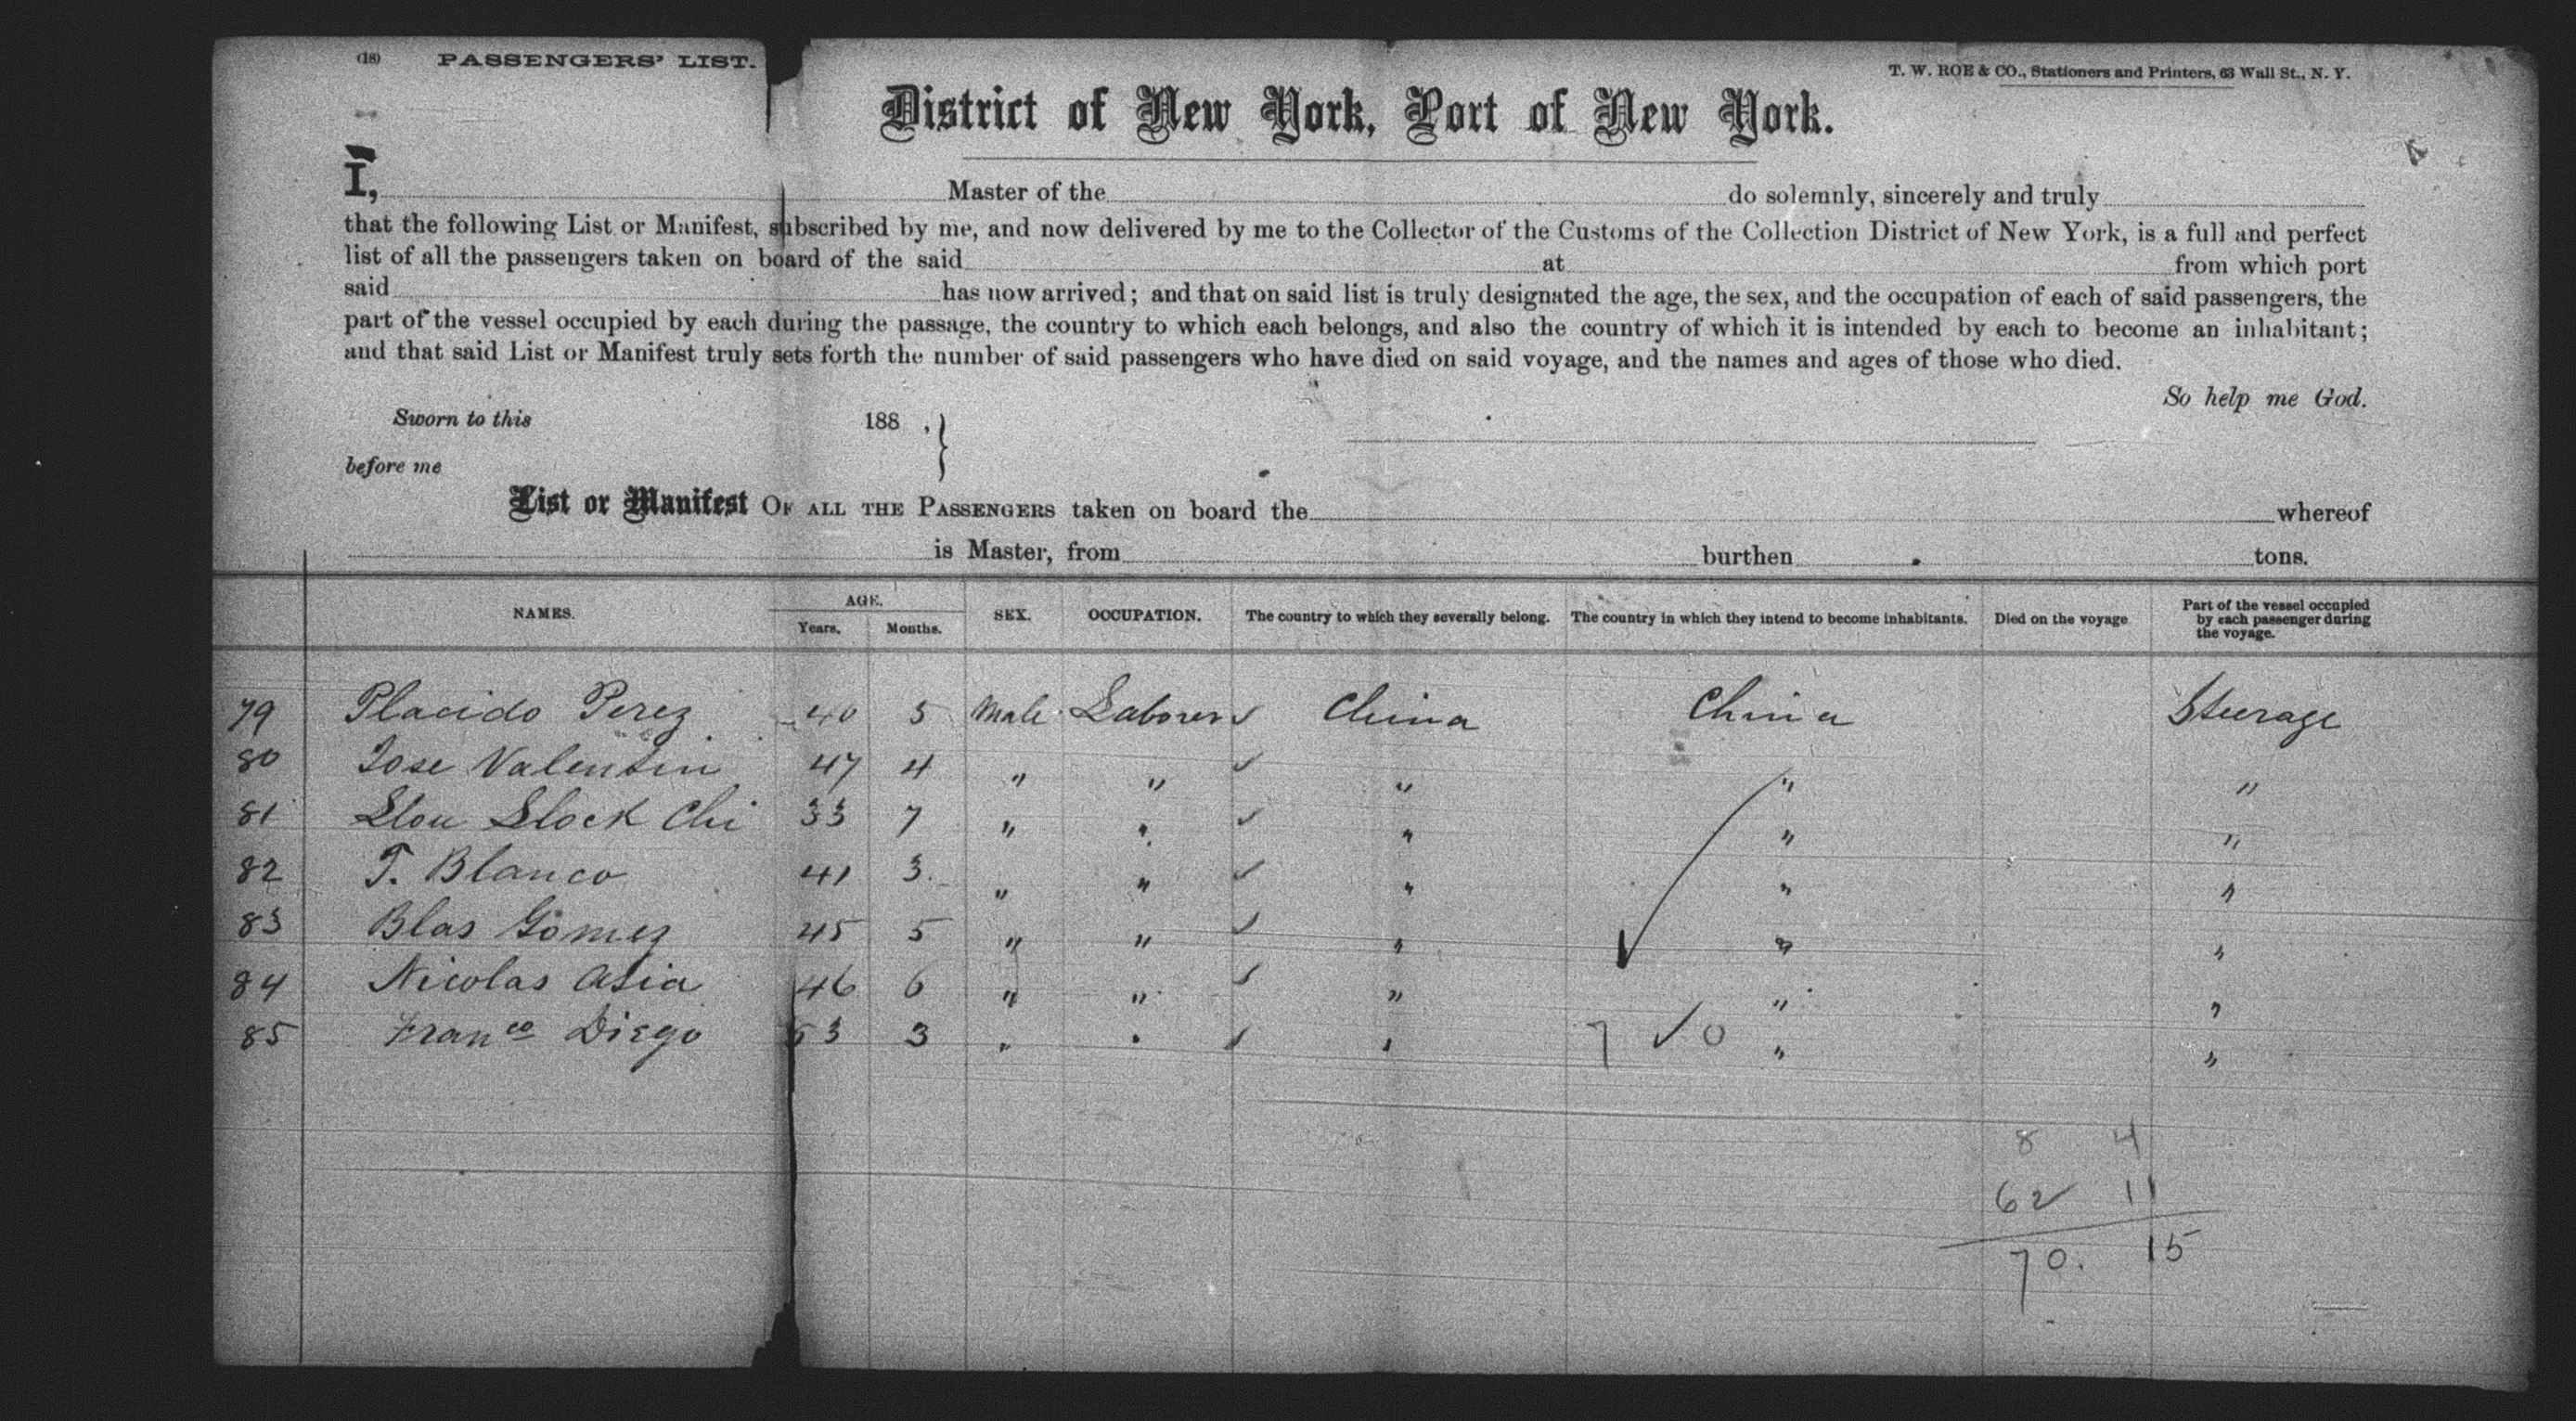 (18) PASSENGERS' LIST.
T. W. ROE & CO., Stationers and Printers, 63 Wall St., N. Y.
District of New York, Port of New York.
I, Master of the do solemnly, sincerely and truly
that the following List or Manifest, subscribed by me, and now delivered by me to the Collector of the Customs of the Collection District of New York, is a full and perfect
list of all the passengers taken on board of the said at from which port
said has now arrived; and that on said list is truly designated the age, the sex, and the occupation of each of said passengers, the
part of the vessel occupied by each during the passage, the country to which each belongs, and also the country of which it is intended by each to become an inhabitant;
and that said List or Manifest truly sets forth the number of said passengers who have died on said voyage, and the names and ages of those who died.
So help me God.
Sworn to this 188 ,
before me
List or Manifest OF ALL THE PASSENGERS taken on board the whereof
is Master, from burthen tons.
NAMES. AGE. Years. Months. SEX. OCCUPATION. The country to which they severally belong. The country in which they intend to become inhabitants. Died on the voyage Part of the vessel occupied by each passenger during the voyage.
79 Placido Perez 40 5 Male Laborer ✓ China China Steerage
80 Jose Valentin 47 4 " " ✓ " " "
81 Slou Slock Chi 33 7 " " ✓ " " "
82 T. Blanco 41 3. " " ✓ " " "
83 Blas Gomez 45 5 " " ✓ " " "
84 Nicolas Asia 46 6 " " ✓ " " "
85 Franco Diego 53 3 " " ✓ " 7 ✓ 0 " "
8 4
62 11
70. 15